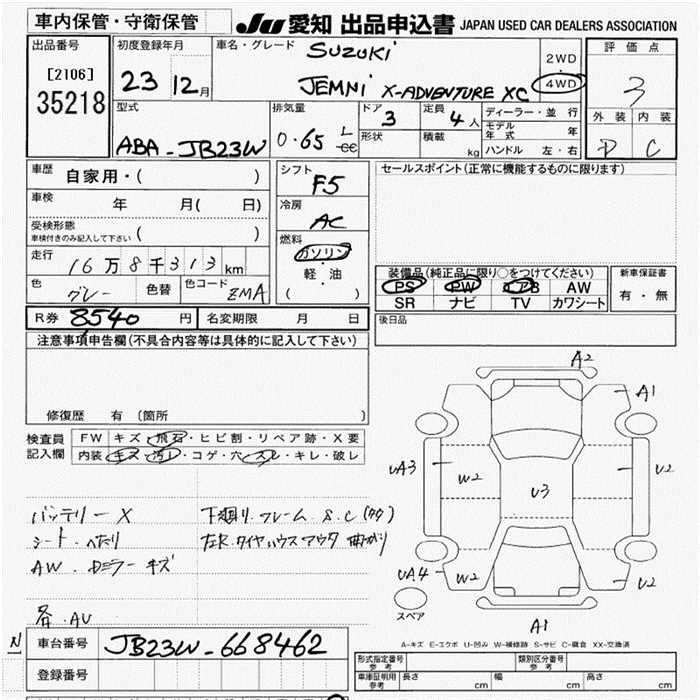 車内保管・守衛保管
JU 愛知 出品申込書 JAPAN USED CAR DEALERS ASSOCIATION
出品番号
[2106]
35218
初度登録年月
23 12月
車名・グレード
SUZUKI
JEMNI X-ADVENTURE XC
2WD
4WD
評価点
3
外装 内装
D C
型式
ABA-JB23W
排気量
0.65 L
cc
ドア
3
形状
定員
4人
積載
kg
ディーラー・並行
モデル年式 年
ハンドル 左・右
車歴 自家用・( )
車検 年 月( 日)
受検形態
車検付きのみ記入して下さい ( )
走行 16万8千313km
色 グレー 色替 色コード ZMA
シフト
F5
冷房
AC
燃料
ガソリン
軽・油
( )
セールスポイント(正常に機能するものに限ります)
装備品(純正品に限り○をつけてください)
PS PW エアB AW
SR ナビ TV カワシート
新車保証書
有・無
後日品
R券 8540円 名変期限 月 日
注意事項申告欄(不具合内容等は具体的に記入して下さい)
修復歴 有 〔箇所 〕
検査員記入欄
FW キズ・飛石・ヒビ割・リペア跡・X要
内装 キズ・汚レ・コゲ・穴・スレ・キレ・破レ
バッテリーX
シート、ヘたり
AW.Dミラー キズ
各.AU
下廻り.フレーム.S.C(タタ)
左R.タイヤハウスアウタ 曲がり
A2
A1
UA3
W2
U3
W2
U2
UA4
W2
U2
A1
スペア
A-キズ E-エクボ U-凹み W-補修跡 S-サビ C-腐食 XX-交換済
N
車台番号 JB23W-668462
登録番号
形式指定番号
参考
類別区分番号
参考
車庫証明用
参考
長さ cm 幅 cm 高さ cm